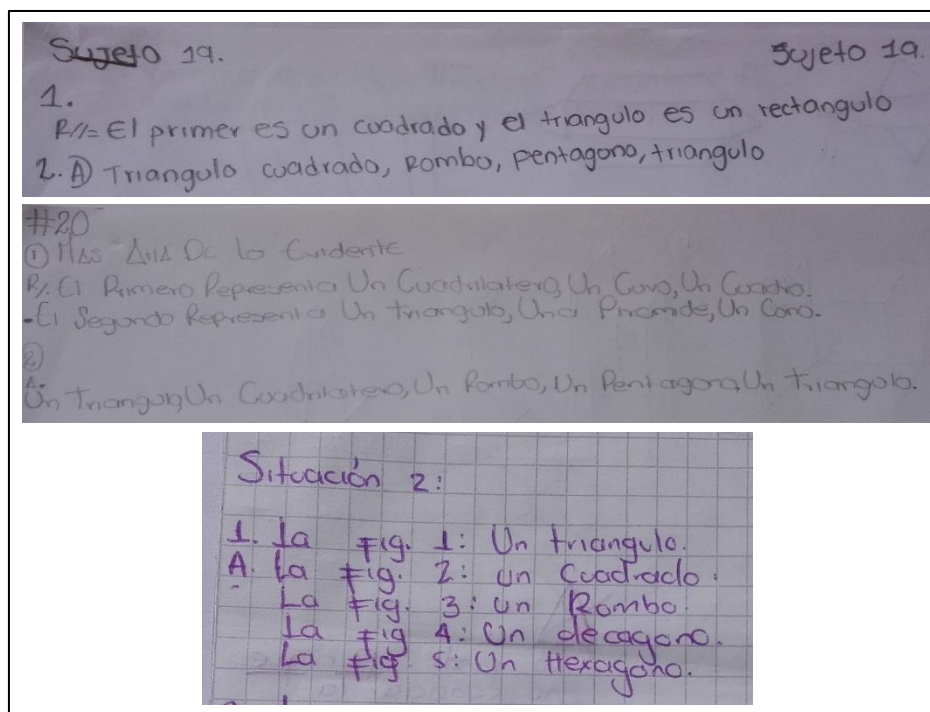 Sujeto 19.
Sujeto 19.
1.
R//= El primer es un cuadrado y el triangulo es un rectangulo
2. A) Triangulo cuadrado, Rombo, pentagono, triangulo
#20
① Mas Alla De lo Evidente
R/. El Primero Representa Un Cuadrilatero, Un Cuvo, Un Cuadro.
- El Segundo Representa Un triangulo, Una Piramide, Un Cono.
2)
A.
Un Triangulo, Un Cuadrilatero, Un Rombo, Un Pentagono, Un triangulo.
Situación 2:
1. La Fig. 1: Un triangulo.
A. La Fig. 2: un Cuadrado.
La Fig. 3: un Rombo.
La fig 4: Un decagono.
La fig 5: Un Hexagono.